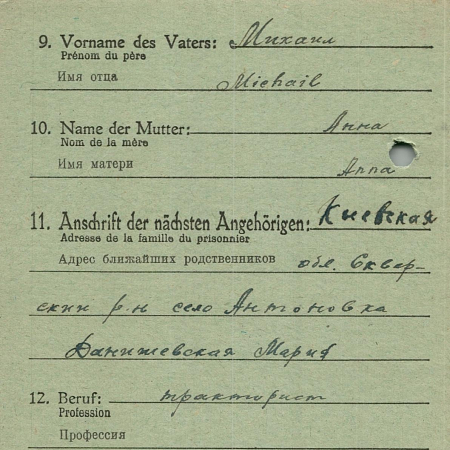 9. Vorname des Vaters: Михаил
Prénom du père
Имя отца Michail
10. Name der Mutter: Анна
Nom de la mère
Имя матери Anna
11. Anschrift der nächsten Angehörigen: Киевская
Adresse de la famille du prisonnier
Адрес ближайших родственников обл. Сквер-
ский р-н село Антоновка
Данишевская Мария
12. Beruf: тракторист
Profession
Профессия